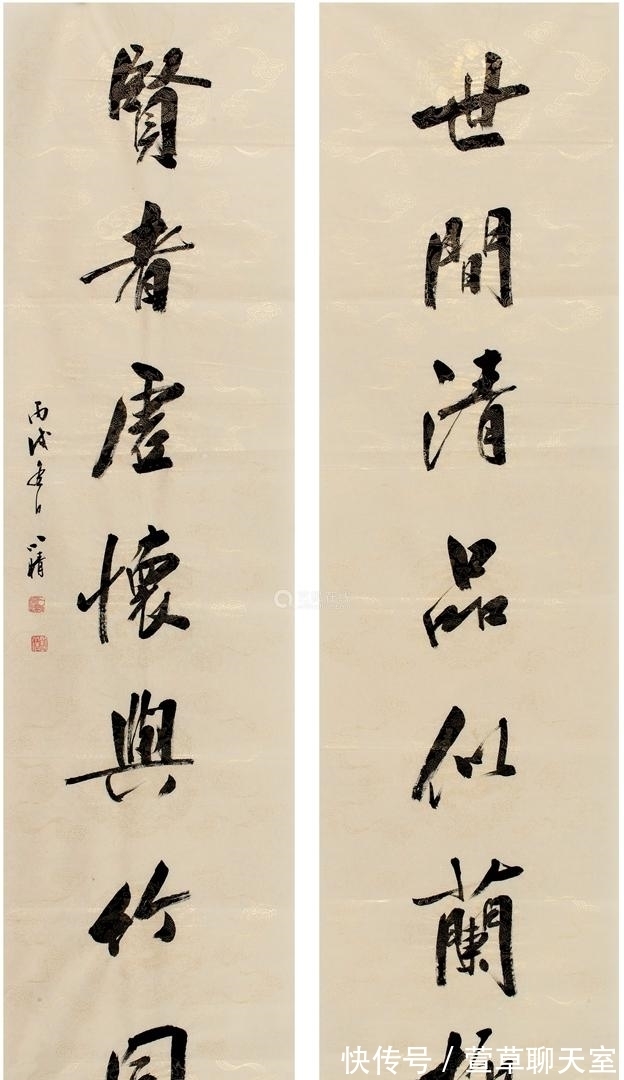 世間清品似蘭
賢者虛懷與竹同
丙戌
快传号 / 萱草聊天室